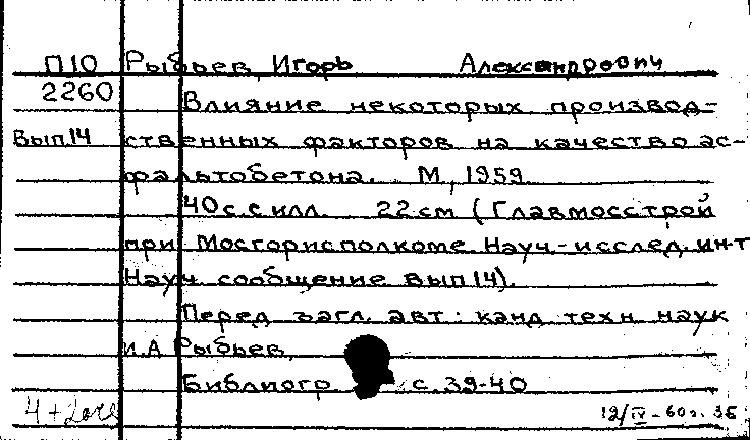 П10 Рыбьев, Игорь Александрович
2260 Влияние некоторых производ-
Вып.14 ственных факторов на качество ас-
фальтобетона. М, 1959
40 с с илл. 22 см (Главмосстрой
при Мосгорисполкоме Науч-исслед. ин-т
Науч сообщение вып 14).
Перед загл. авт: канд техн наук
И.А Рыбьев.
Библиогр с. 39-40
12/IV-60г.